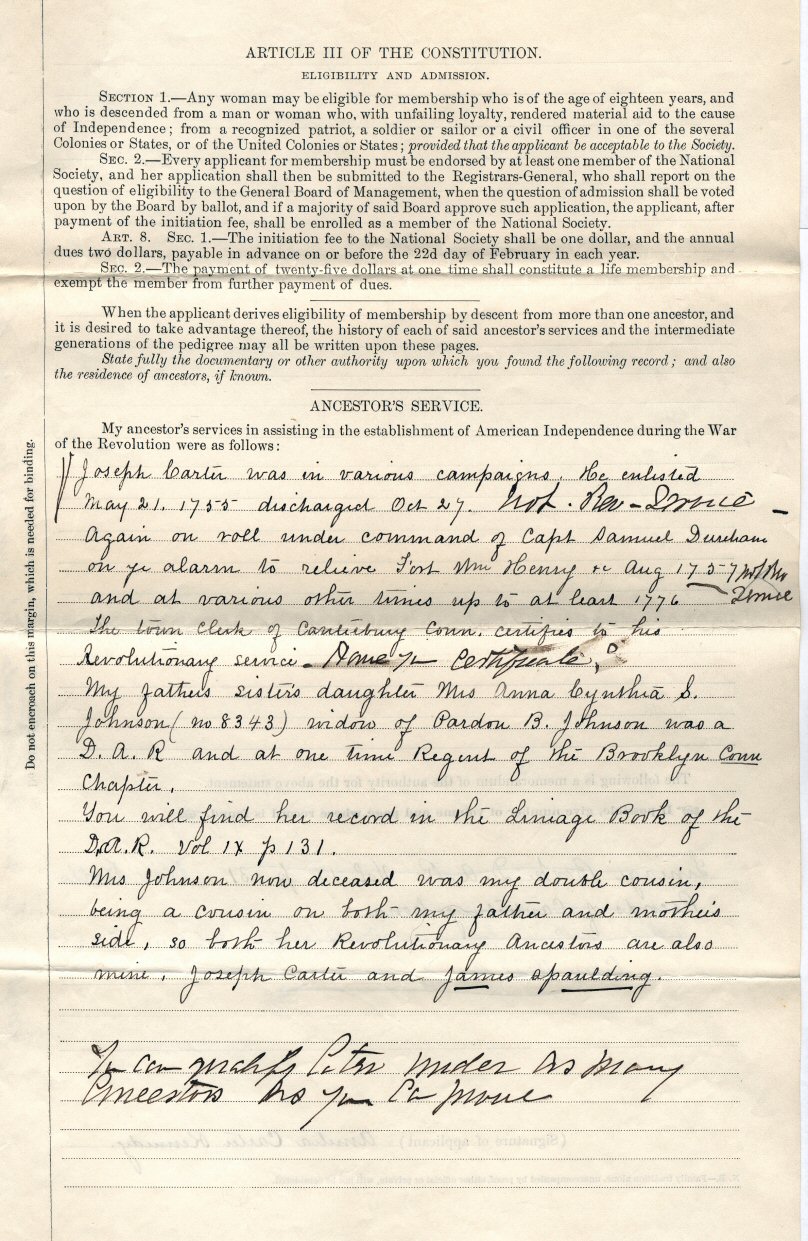 ARTICLE III OF THE CONSTITUTION.
ELIGIBILITY AND ADMISSION.
SECTION 1.—Any woman may be eligible for membership who is of the age of eighteen years, and
who is descended from a man or woman who, with unfailing loyalty, rendered material aid to the cause
of Independence; from a recognized patriot, a soldier or sailor or a civil officer in one of the several
Colonies or States, or of the United Colonies or States; provided that the applicant be acceptable to the Society.
SEC. 2.—Every applicant for membership must be endorsed by at least one member of the National
Society, and her application shall then be submitted to the Registrars-General, who shall report on the
question of eligibility to the General Board of Management, when the question of admission shall be voted
upon by the Board by ballot, and if a majority of said Board approve such application, the applicant, after
payment of the initiation fee, shall be enrolled as a member of the National Society.
ART. 8. SEC. 1.—The initiation fee to the National Society shall be one dollar, and the annual
dues two dollars, payable in advance on or before the 22d day of February in each year.
SEC. 2.—The payment of twenty-five dollars at one time shall constitute a life membership and
exempt the member from further payment of dues.
When the applicant derives eligibility of membership by descent from more than one ancestor, and
it is desired to take advantage thereof, the history of each of said ancestor's services and the intermediate
generations of the pedigree may all be written upon these pages.
State fully the documentary or other authority upon which you found the following record; and also
the residence of ancestors, if known.
ANCESTOR'S SERVICE.
My ancestor's services in assisting in the establishment of American Independence during the War
of the Revolution were as follows:
Joseph Carter was in various campaigns. He enlisted
May 21, 1755 discharged Oct 27. Not. Rev- Service
Again on roll under command of Capt Samuel
on ye alarm to relieve Fort Wm Henry &c Aug 1757 not Rev
Service
and at various other times up to at least 1776
The town clerk of Canterbury Conn. certifies to his
Revolutionary service. Have you certificate?
My fathers sisters daughter Mrs Anna Cynthia S.
Johnson (no 8343) widow of Pardon B. Johnson was a
D. A. R and at one time Regent of the Brooklyn Conn
Chapter.
You will find her record in the Lineage Book of the
D.A.R. Vol IX p 131.
Mrs Johnson now deceased was my double cousin,
being a cousin on both my father and mother's
side, so both her Revolutionary Ancestors are also
mine, Joseph Carter and James Spaulding.
You can qualify later under as many
Ancestors as you can prove
Do not encroach on this margin, which is needed for binding.